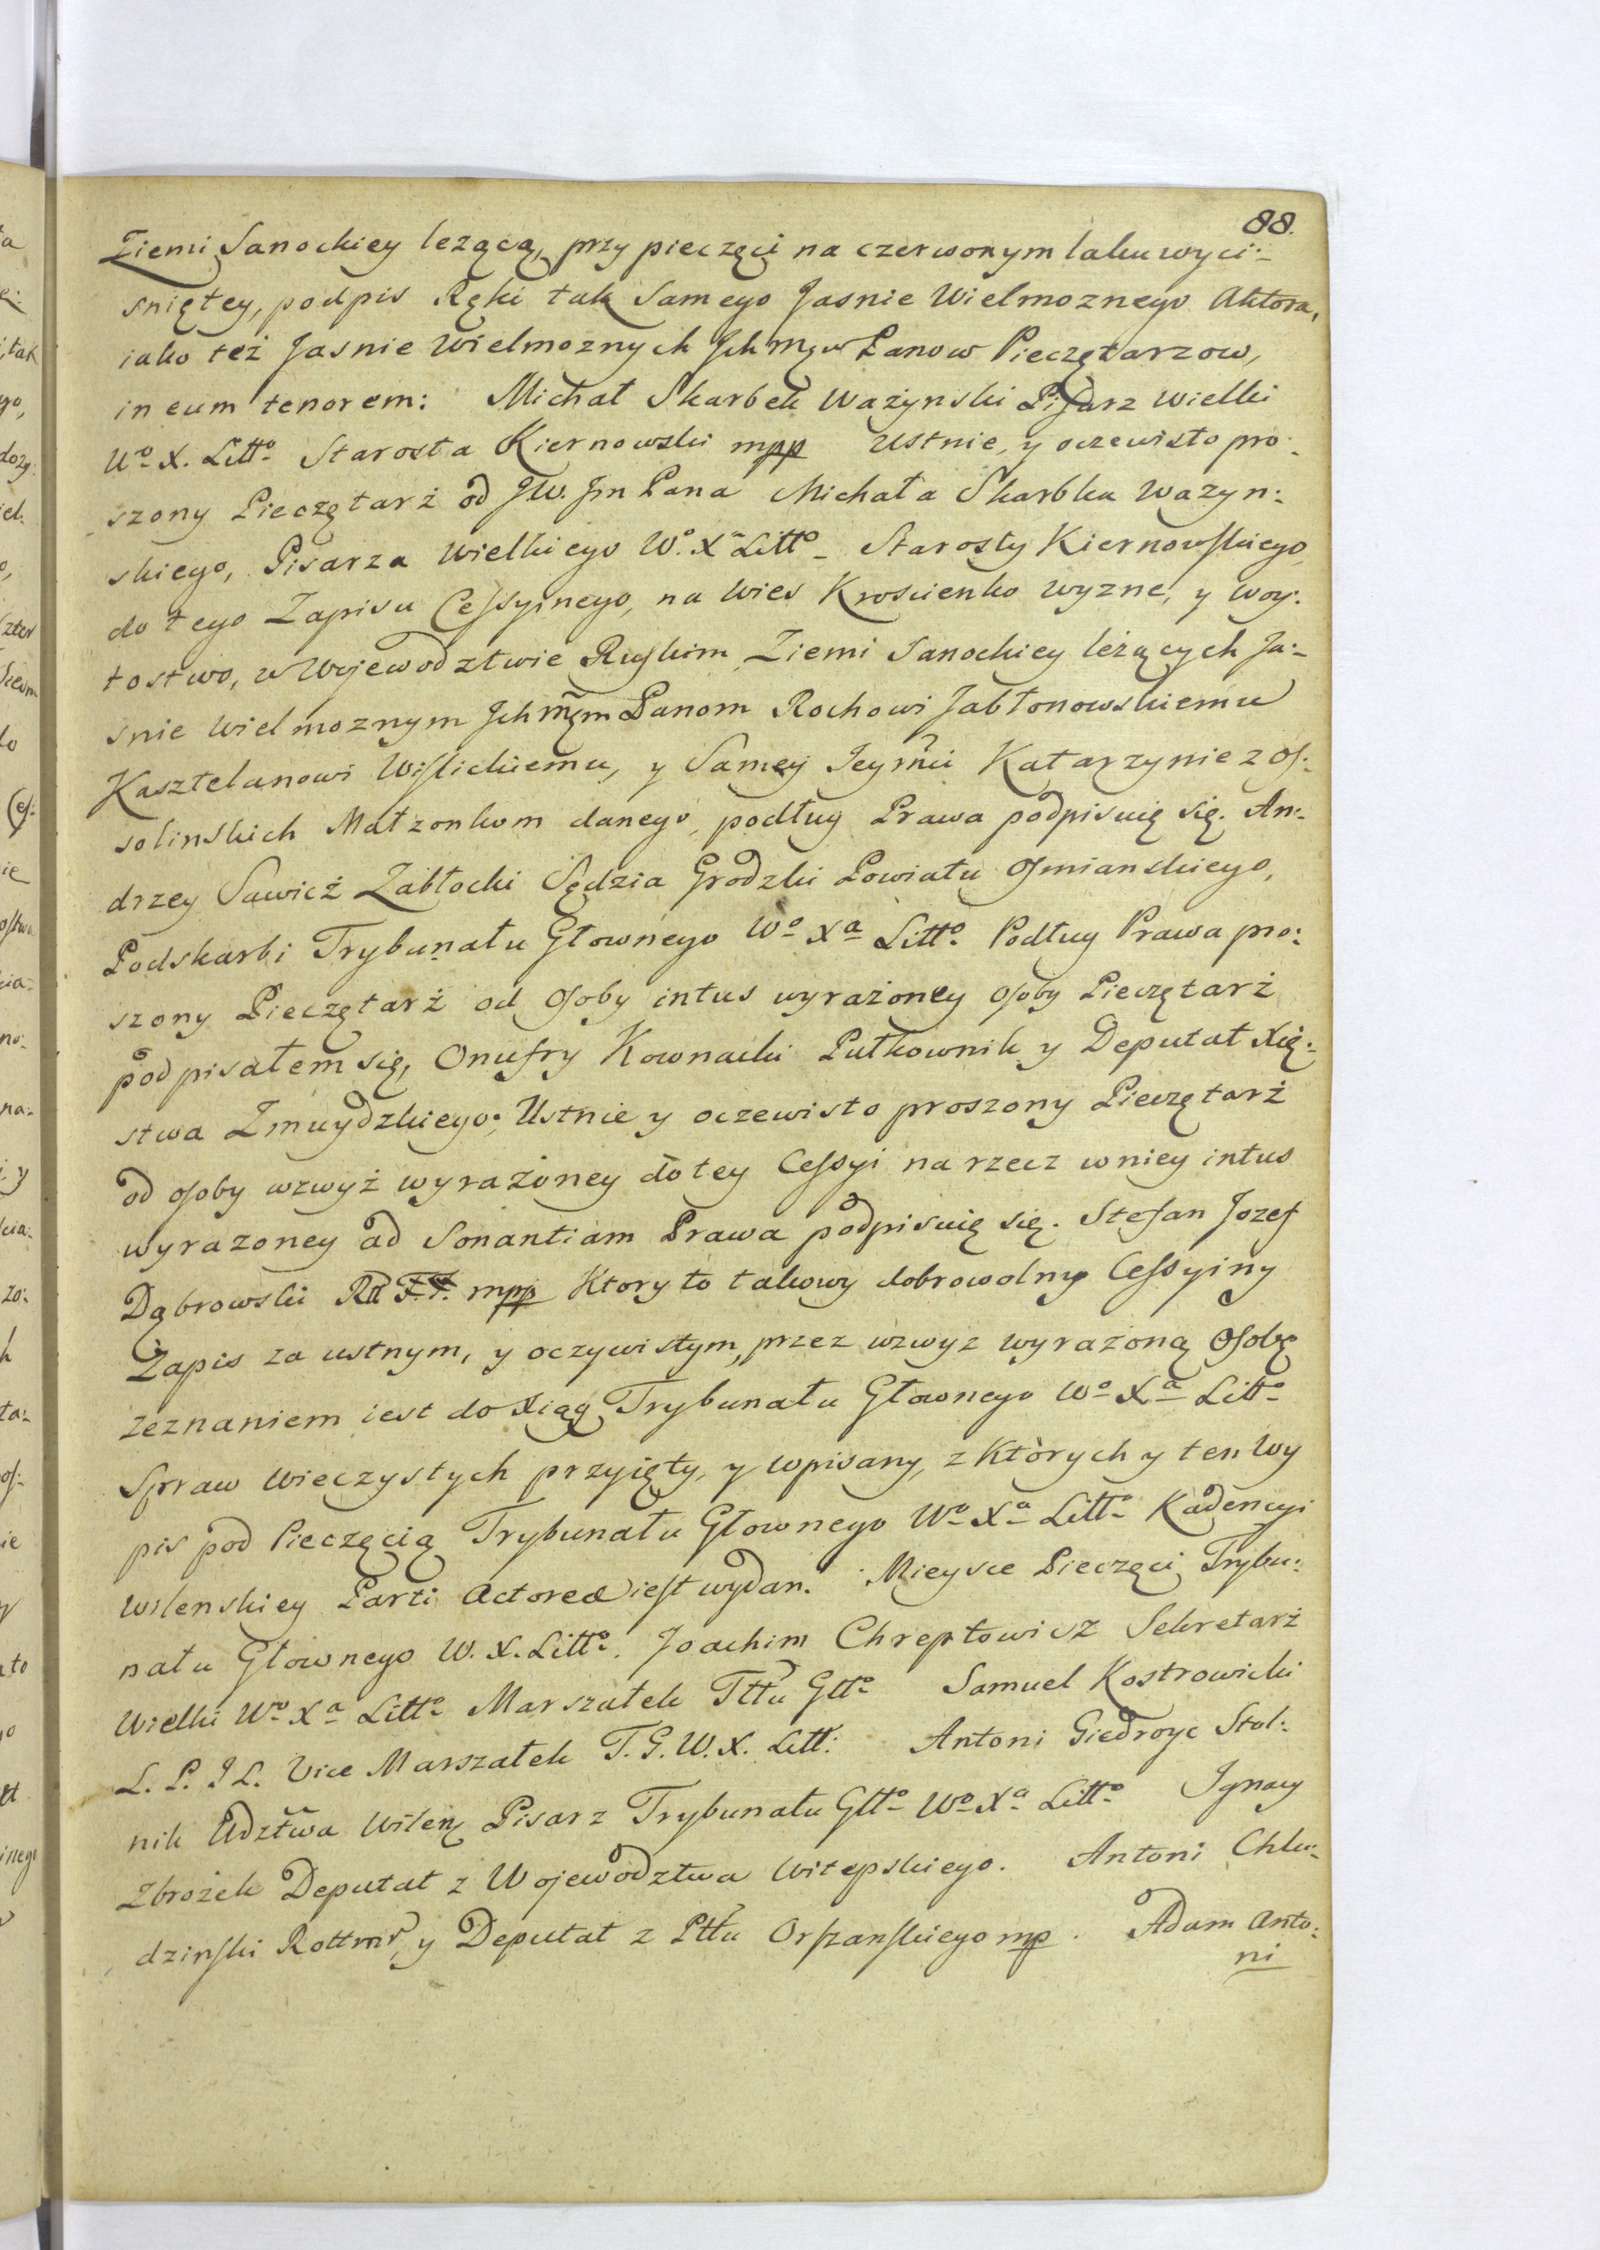 88.
Ziemi Sanockiey leżącą, przy pieczęci na czerwonym laku wyci:
sniętey, podpis Ręki tak Samego Jasnie Wielmoznego Aktora,
iako też Jasnie Wielmoznych Jchmcęw Panow Pieczętarzow,
in eum tenorem: Michał Skarbek Ważynski Pisarz Wielki
Wo X. Litto Starosta Kiernowski mpp Ustnie, y oczewisto pro:
szony Pieczętarż od JW. Jm Pana Michała Skarbka Wazyn:
skiego, Pisarza Wielkiego Wo Xa Litto Starosty Kiernowskiego
do tego Zapisu Cessyinego, na Wies Krościenko wyzne, y Woy:
tostwo, w Wojewodztwie Ruskim Ziemi Sanockiey leżących Ja:
snie Wielmoznym Jchmcm Panom Rochowi Jabłonowskiemu
Kasztelanowi Wislickiemu, y Samey Jeymci Katarzynie z Os:
solinskich Małzonkom danego, podług Prawa podpisuię się. An:
drzey Sawicż Zabłocki Sędzia Grodzki Powiatu Osmianskiego,
Podskarbi Trybunału Głownego Wo Xa Litto Podług Prawa pro:
szony Pieczętarż od Osoby intus wyrażoney osoby Pieczętarż
podpisałem się, Onufry Kownacki Pułkownik y Deputat Xię:
stwa Zmuydzkiego; Ustnie y oczewisto proszony Pieczętarż
od osoby wzwyż wyrażoney do tey Cessyi na rzecz w niey intus
wyrazoney ad Sonantiam Prawa podpisuię się. Stefan Jozef
Dąbrowski mpp Ktory to takowy dobrowolny Cessyiny
Zapis za ustnym, y oczywistym, przez wzwyz wyrażoną Osobę
zeznaniem iest do Xiąg Trybunału Głownego Wo Xa Litto
Spraw Wieczystych przyięty, y wpisany, z Których y ten Wy
pis pod Pieczęcią Trybunału Głownego Wo Xa Litto Kadencyi
Wilenskiey Parti Actoreæ iest wydan. Mieysce Pieczęci Trybu:
nału Głownego W. X. Litto. Joachim Chreptowisz Sekretarż
Wielki Wo Xa Litto Marszałek Tłłu Głło Samuel Kostrowicki
L. P. J L. Vice Marszałek T. G. W. X. Litt: Antoni Giedroyc Stol:
nik Wdztwa Wilen Pisarz Trybunału Głło Wo Xa Litto Ignacy
Zbrożek Deputat z Wojewodztwa Witepskiego. Antoni Chlu:
dzinski Rottmr, y Deputat z Ptłu Orszanskiego mp. Adam Anto:
ni